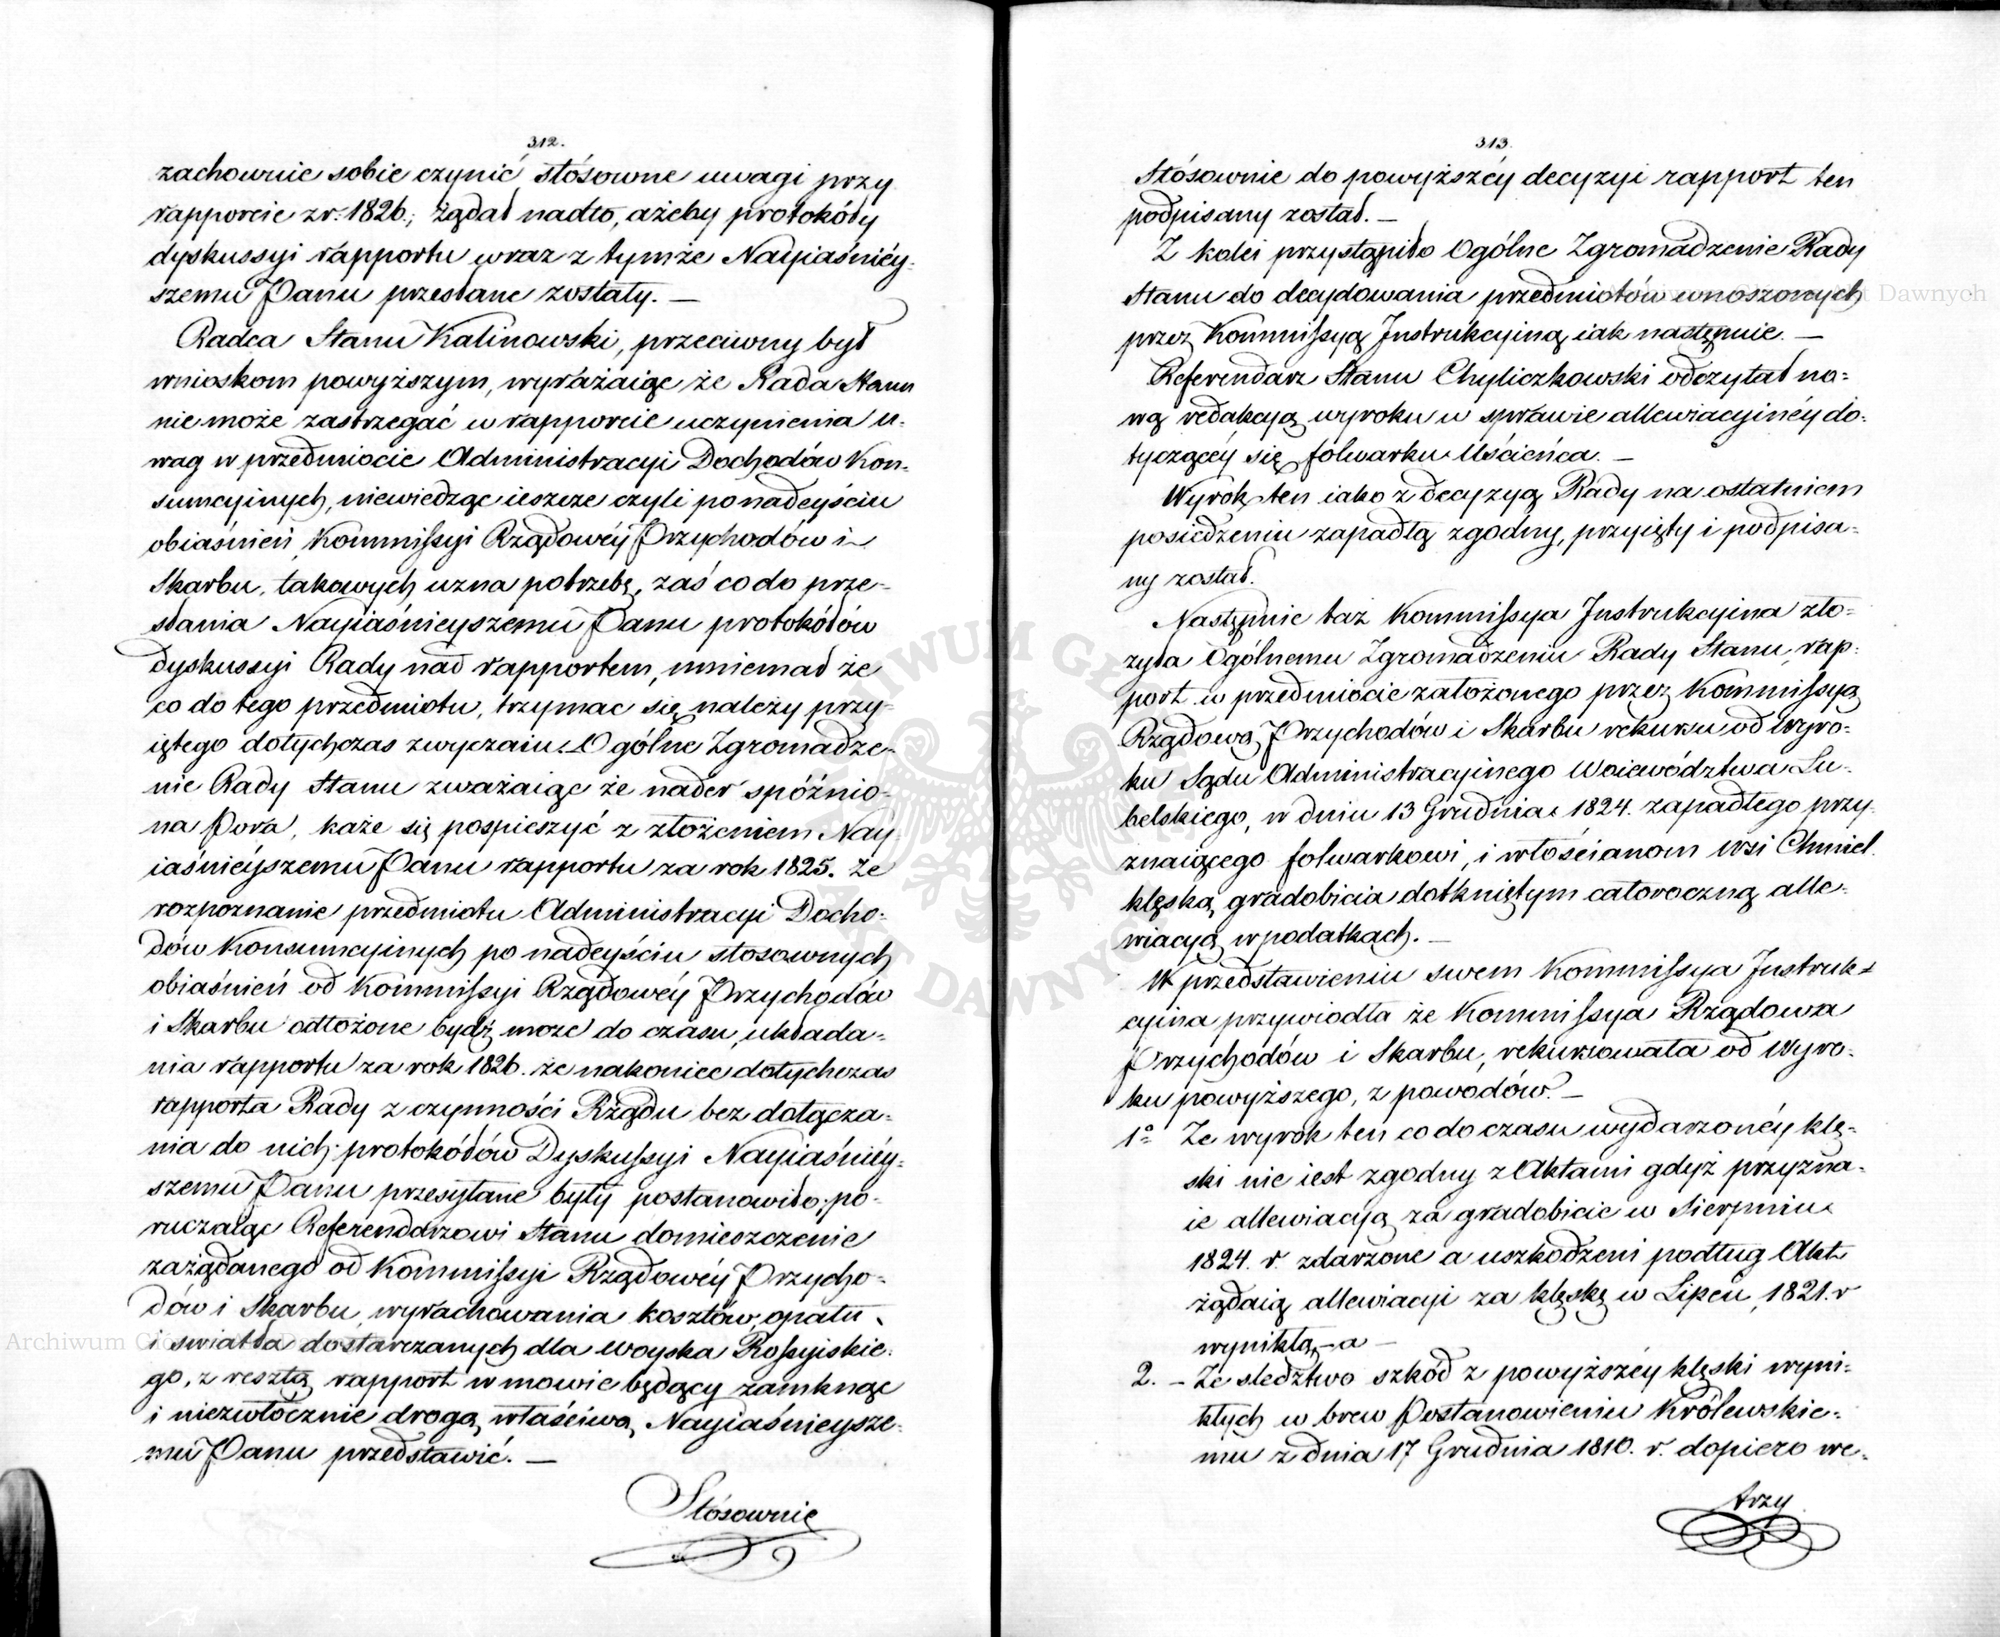 312.
zachownie sobie czynić stósowne uwagi przy
rapporcie z r. 1826.; żądał nadto, ażeby protokóły
dyskussyi rapportu wraz z tymże Nayiaśnićy-
szemu Panu przesłane zostały. —
Radca Stanu Kalinowski, przeciwny był
wnioskom powyższym, wyrażaiąc że Rada Stanu
nie może zastrzegać w rapporcie uczynienia u-
wag w przedmiocie Administracyi Dochodów Kon-
sumcyinych, niewiedząc ieszcze czyli po nadeyściu
obiaśnień Kommissyi Rządowéy Przychodów i
Skarbu, takowych uzna potrzebę, zaś co do prze-
słania Nayiaśnieyszemu Panu protokółów
dyskussyi Rady nad rapportem, mniemał że
co do tego przedmiotu, trzymac się należy przy-
iętego dotychczas zwyczaiu. Ogólne Zgromadze-
nie Rady Stanu zważaiąc że nader spóźnio-
na Pora, każe się pospieszyć z złożeniem Nay-
iaśnieyszemu Panu rapportu za rok 1825. że
rozpoznanie przedmiotu Administracyi Docho-
dów Konsumcyinych po nadeyściu stosownych
obiaśnień od Kommissyi Rządowéy Przychodów
i Skarbu odłożone bydź może do czasu, układa-
nia rapportu za rok 1826. że nakoniec dotychczas
rapporta Rady z czynności Rządu bez dołącza-
nia do nich protokółów Dyskussyi Nayiaśniéy-
szemu Panu przesyłane były postanowiło; po-
ruczaiąc Referendarzowi Stanu domieszczenie
zażądanego od Kommissyi Rządowéy Przycho-
dów i Skarbu, wyrachowania kosztów, opału
i swiatła dostarczanych dla woyska Rossyiskie-
go, z resztą rapport w mowie będący zamknąc
i niezwłocznie drogą właściwą Nayiaśnieysze-
mu Panu przedstawić. —
Stósownie
313.
Stósownie do powyższéy decyzyi rapport ten
podpisany został. —
Z kolei przystąpiło Ogólne Zgromadzenie Rady
Stanu do decydowania przedmiotów wnoszonych
przez Kommissyą Instrukcyiną iak następnie. —
Referendarz Stanu Chyliczkowski odczytał no-
wą redakcyą wyroku w sprawie allewiacyinéy do-
tyczącéy się folwarku Uścieńca. —
Wyrok ten iako z decyzyą Rady na ostatniem
posiedzeniu zapadłą zgodny, przyięty i podpisa-
ny został.
Następnie taż Kommissya Instrukcyina zło-
żyła Ogólnemu Zgromadzeniu Rady Stanu, rap-
port w przedmiocie założonego przez Kommissyą
Rządową Przychodów i Skarbu rekursu od Wyro-
ku Sądu Administracyinego Woiewództwa Lu-
belskiego, w dniu 13 Grudnia 1824. zapadłego przy-
znaiącego folwarkowi, i włościanom wsi Chmiel
klęską gradobicia dotkniętym całoroczną alle-
wiacyą w podatkach. —
W przedstawieniu swem Kommissya Instruk-
cyina przywiodła że Kommissya Rządowa
Przychodów i Skarbu, rekurowała od Wyro-
ku powyższego, z powodów. —
1o Że wyrok ten co do czasu wydarzonéy klę-
ski nie iest zgodny z Aktami gdyż przyzna-
ie allewiacyą za gradobicie w Sierpniu
1824. r. zdarzone a uszkodzeni podług Akt
żądaią allewiacyi za klęskę w Lipcu, 1821. r
wynikłą, — a —
2. — Że sledztwo szkód z powyższéy klęski wyni-
kłych w brew Postanowieniu Królewskie-
mu z dnia 17 Grudnia 1810. r. dopiero we-
trzy
Archiwum Główne Akt Dawnych